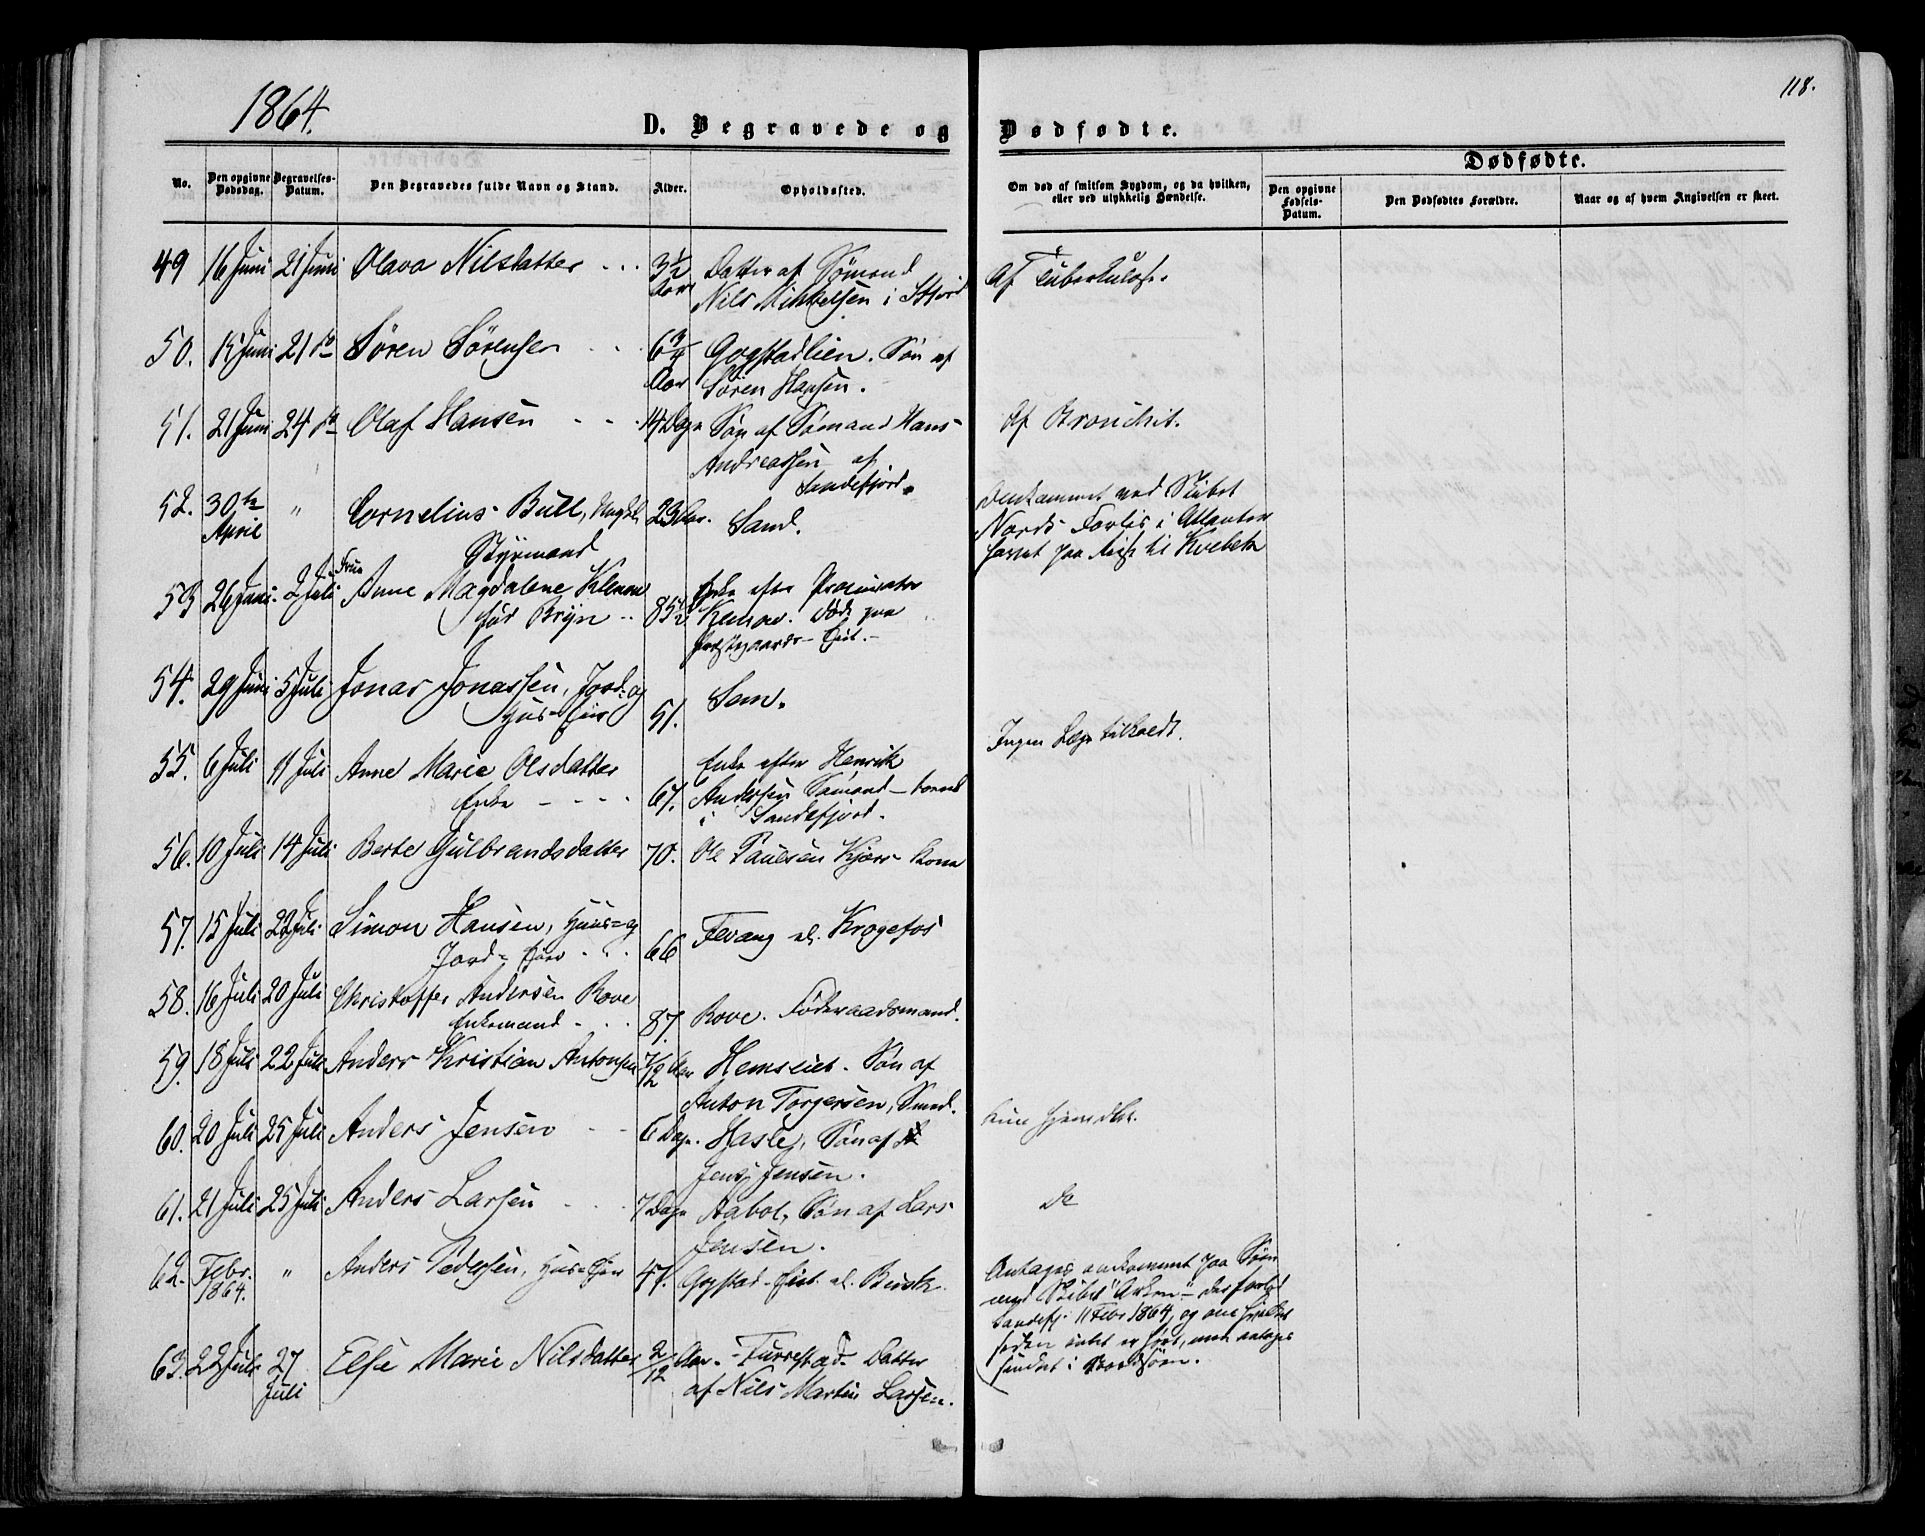 1864.
118.
D. Begravede og Dødfødte.
No.
Den opgivne Dødsdag.
Begravelses-Datum.
Den Begravedes fulde Navn og Stand.
Alder.
Opholdssted.
Om død af smitsom Sygdom, og da hvilken, eller ved ulykkelig Hændelse.
Dødfødte.
Den opgivne Fødsels-Datum.
Den Dødfødtes Forældre.
Naar og af hvem Angivelsen er skeet.
49 16 Juni 21 Juni Olava Nilsdatter 3½ Aar Datter af Sømand
Nils Mikkelsen i Sfjord
Af Tuberkulose.
50. 15 Juni 21 do Søren Sørensen 6¾ Aar Gogstadlien. Søn af
Søren Hansen.
51. 21 Juni 24 do Olaf Hansen 14 Dage Søn af Sømand Hans
Andreassen af
Sandefjord.
Af Bronchit.
52. 30te April " Cornelius Bull, Ungkl.
Styrmand
23 Aar. Sand.
Omkommet ved Skibet
Nords Forlis i Atlanter
havet paa Reise til Kvebek
53 26 Juni 2 Juli Frue Anne Magdalene Klenow
født Bryn 85½ Enke efter Procurator
Klenow. Død paa
Præstegaards-Eiet.
54. 29 Juni 5 Juli Jonas Jonassen, Jord- og
Huus-Eier 51. Sem.
55. 6 Juli 11 Juli Anne Marie Olsdatter
Enke 67. Enke efter Henrik
Andersen Sømand
i Sandefjord.
Ingen Læge tilkaldt.
56. 10 Juli 14 Juli Berte Gulbrandsdatter 70. Ole Paulsen Kjærs Kone
57. 15 Juli 22 Juli Simon Hansen, Huus- og
Jord-Eier 66 Fevang al. Krogefos
58. 16 Juli 20 Juli Christoffer Andersen Rove
Enkemand 87. Rove. Føderaadsmand.
59. 18 Juli 22 Juli Anders Kristian Antonsen 7/12 Aar Hemseiet. Søn af
Anton Torgersen, Smed.
60. 20 Juli 25 Juli Anders Jensen 6 Dage. Hasle, Søn af
Jens Jensen.
kun hjemdbt.
61. 21 Juli 25 Juli Anders Larsen 7 Dage Aabol, Søn af Lars
Jensen.
do
62. Febr. 1864. " Anders Pedersen, Hus-Eier 47. Gogstad-Eiet al. Busk.
Antages omkommet paa Søen
med Skibet "Anken" der forlod
Sandefj. 11 Febr 1864, og om hvilket
siden intet er hørt, men antages
sunket i Nordsøen.
63. 22 Juli 27 Juli Else Marie Nilsdatter 2/12 Aar. Furrestad. Datter
af Nils Martin Larsen.